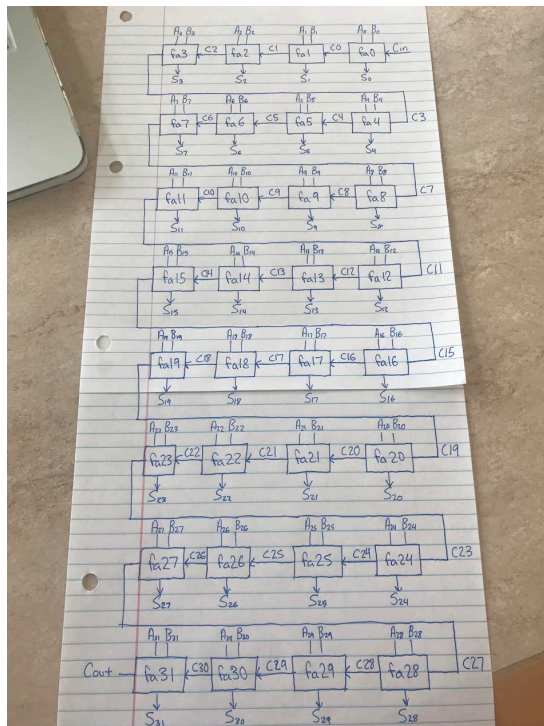 A₃ B₃ A₂ B₂ A₁ B₁ A₀ B₀
fa3 C2 fa2 C1 fa1 C0 fa0 Cin
S₃ S₂ S₁ S₀
A₇ B₇ A₆ B₆ A₅ B₅ A₄ B₄
fa7 C6 fa6 C5 fa5 C4 fa4 C3
S₇ S₆ S₅ S₄
A₁₁ B₁₁ A₁₀ B₁₀ A₉ B₉ A₈ B₈
fa11 C10 fa10 C9 fa9 C8 fa8 C7
S₁₁ S₁₀ S₉ S₈
A₁₅ B₁₅ A₁₄ B₁₄ A₁₃ B₁₃ A₁₂ B₁₂
fa15 C14 fa14 C13 fa13 C12 fa12 C11
S₁₅ S₁₄ S₁₃ S₁₂
A₁₉ B₁₉ A₁₈ B₁₈ A₁₇ B₁₇ A₁₆ B₁₆
fa19 C18 fa18 C17 fa17 C16 fa16 C15
S₁₉ S₁₈ S₁₇ S₁₆
A₂₃ B₂₃ A₂₂ B₂₂ A₂₁ B₂₁ A₂₀ B₂₀
fa23 C22 fa22 C21 fa21 C20 fa20 C19
S₂₃ S₂₂ S₂₁ S₂₀
A₂₇ B₂₇ A₂₆ B₂₆ A₂₅ B₂₅ A₂₄ B₂₄
fa27 C26 fa26 C25 fa25 C24 fa24 C23
S₂₇ S₂₆ S₂₅ S₂₄
A₃₁ B₃₁ A₃₀ B₃₀ A₂₉ B₂₉ A₂₈ B₂₈
Cout fa31 C30 fa30 C29 fa29 C28 fa28 C27
S₃₁ S₃₀ S₂₉ S₂₈